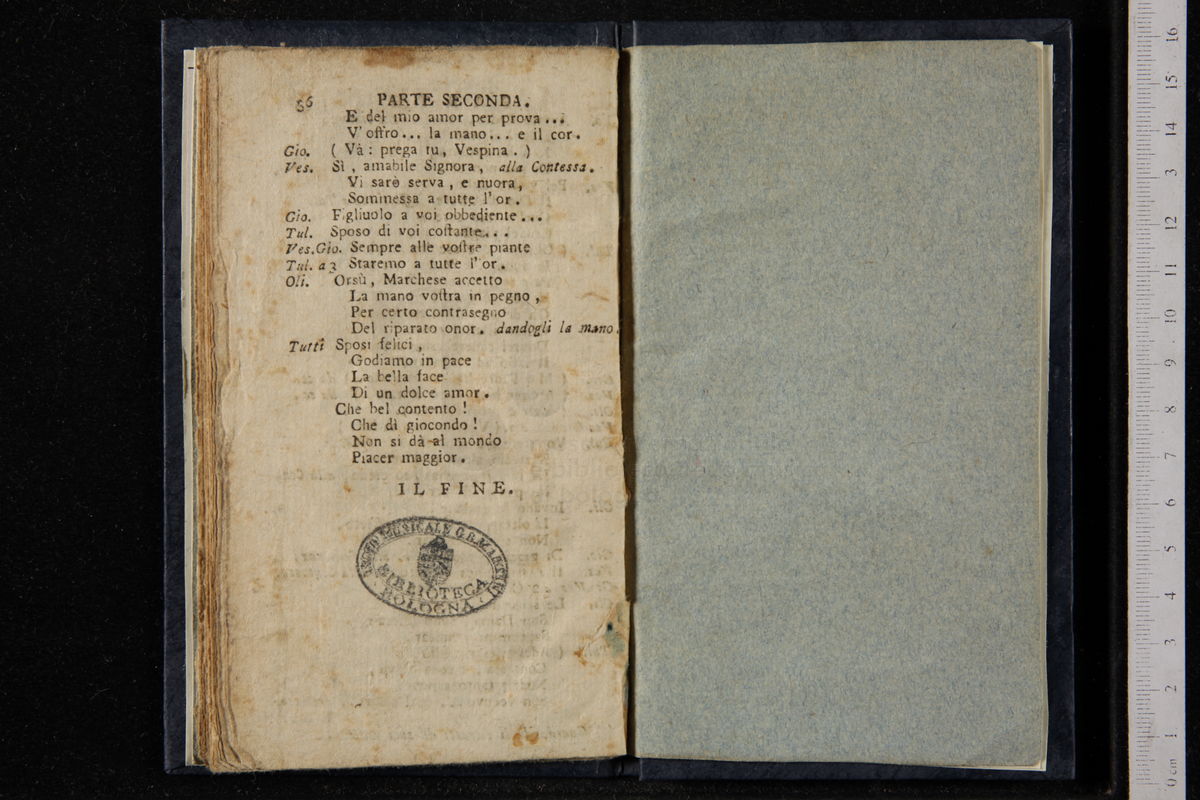 56 PARTE SECONDA.
E del mio amor per prova...
V' offro... la mano... e il cor.
Gio. ( Và: prega tu, Vespina. )
Ves. Sì, amabile Signora, alla Contessa.
Vi sarò serva, e nuora,
Sommessa a tutte l' or.
Gio. Figliuolo a voi obbediente...
Tul. Sposo di voi costante...
Ves.Gio. Sempre alle vostre piante
Tul. a 3 Staremo a tutte l' or.
Oli. Orsù, Marchese accetto
La mano vostra in pegno,
Per certo contrasegno
Del riparato onor. dandogli la mano.
Tutti Sposi felici,
Godiamo in pace
La bella face
Di un dolce amor.
Che bel contento!
Che dì giocondo!
Non si dà al mondo
Piacer maggior.
IL FINE.
MUSICALE G.B. MARTINI
BIBLIOTECA
BOLOGNA
16
15
14
13
12
11
10
9
8
7
6
5
4
3
2
1
0 cm